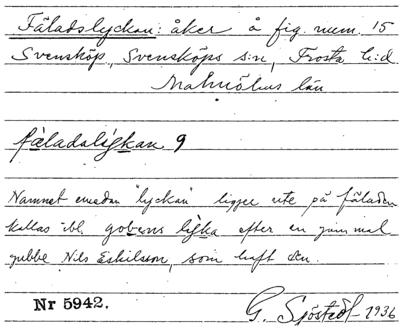 Fäladslyckan: åker å fig. num. 15
Svensköp, Svensköps s:n, Frosta h:d
Malmöhus län
fæladslykan 9
Namnet emedan "lyckan" ligger ute på fäladen
kallas ibl. gobens lyka efter en gammal
gubbe Nils Eskilsson, som haft den.
Nr 5942.
G. Sjöstedt 1936